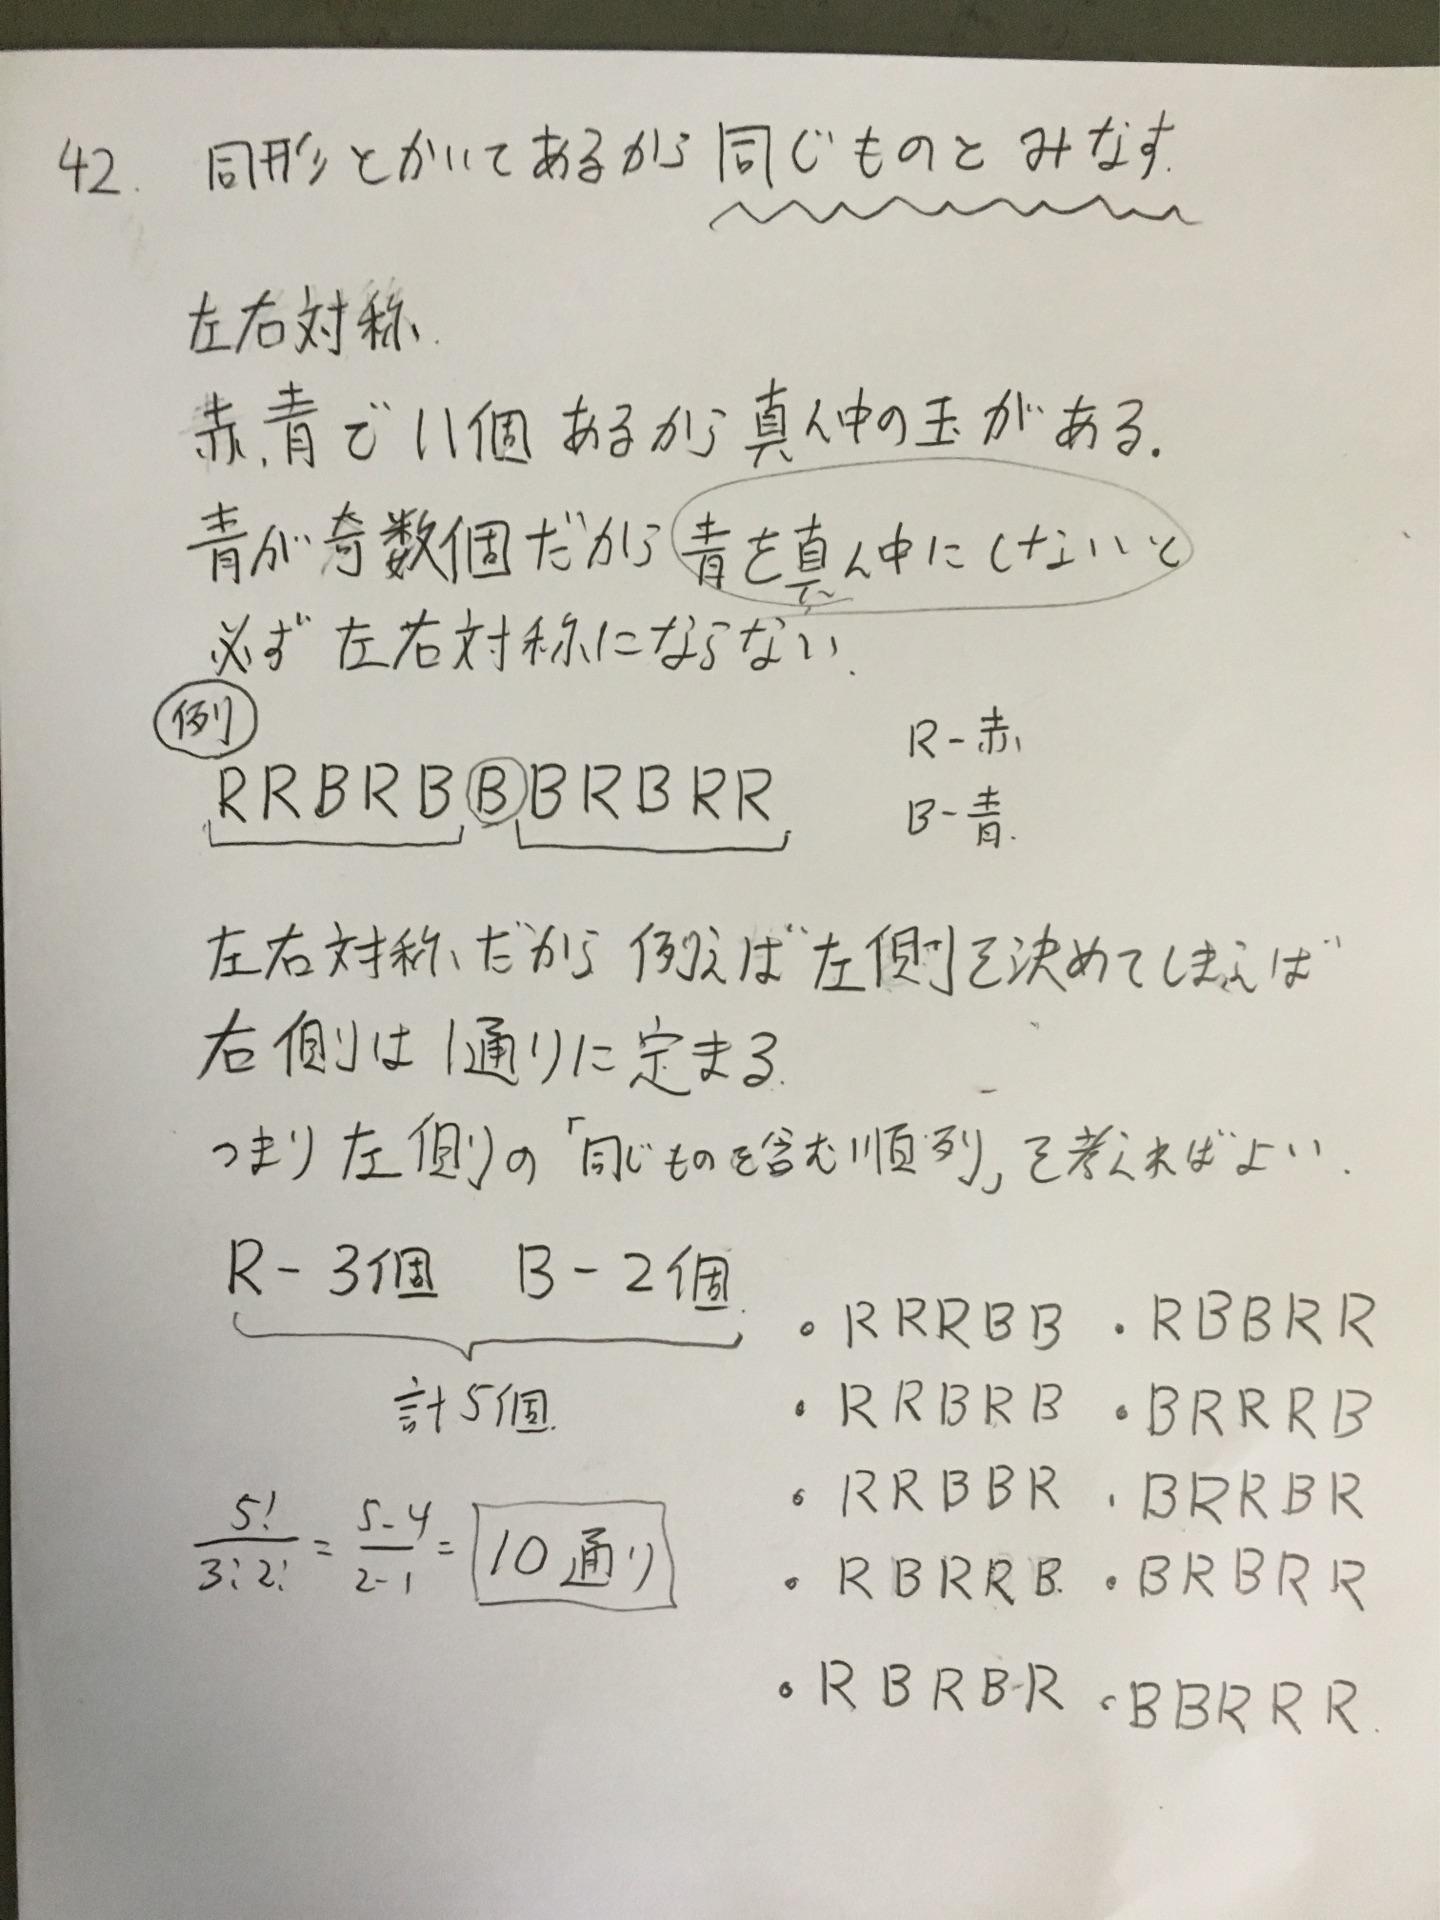 42. 同形とかいてあるから同じものとみなす.
左右対称.
赤、青で11個あるから真ん中の玉がある.
青が奇数個だから青を真ん中にしないと
必ず左右対称にならない.
例
RRBRBBBRBRR
R-赤
B-青.
左右対称だから例えば左側を決めてしまえば
右側は1通りに定まる.
つまり左側の「同じものを含む順列」を考えればよい.
R-3個 B-2個.
計5個.
5!/3!2! = 5-4/2-1 = 10通り
・RRRBB ・RBBRR
・RRBRB ・BRRRB
・RRBBR ・BRRBR
・RBRRB. ・BRBRR
・RBRBR ・BBRRR.